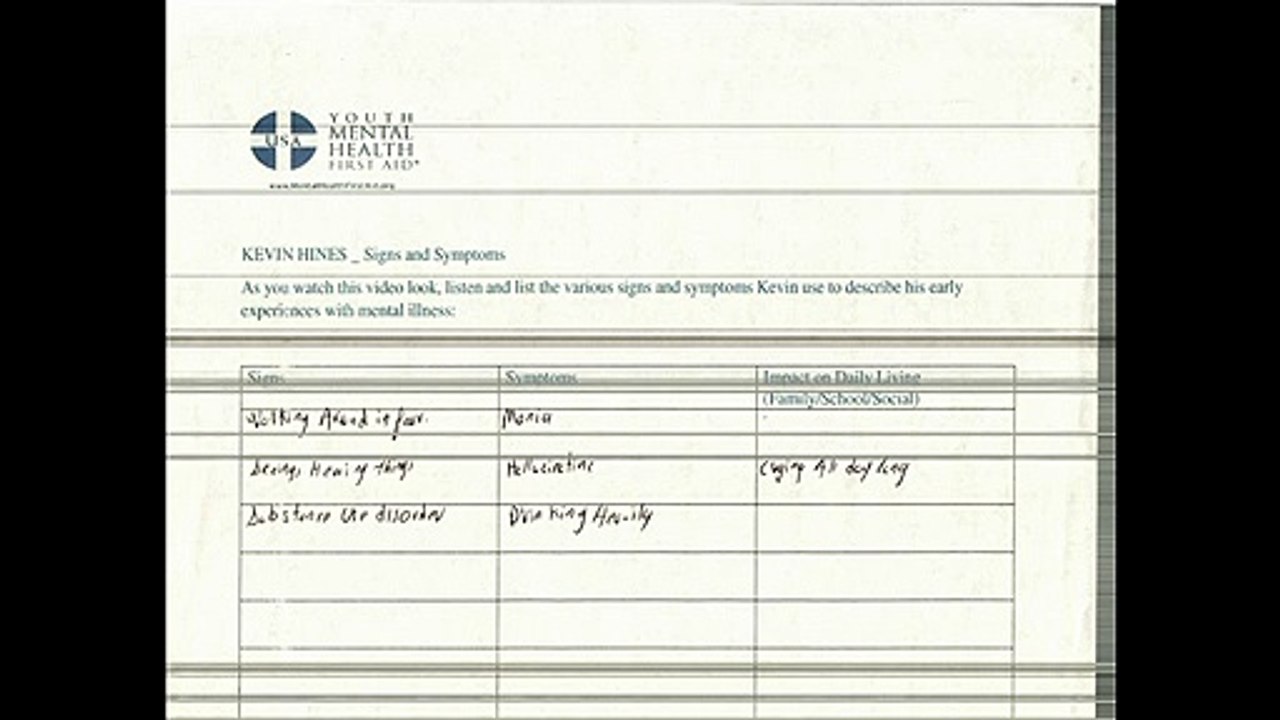 YOUTH
MENTAL
HEALTH
FIRST AID®
USA
www.MentalHealthFirstAid.org
KEVIN HINES _ Signs and Symptoms
As you watch this video look, listen and list the various signs and symptoms Kevin use to describe his early
experiences with mental illness:
Signs Symptoms Impact on Daily Living
(Family/School/Social)
in fear. Mania
Seeing, Hearing things Crying All day long
Substance use disorder Drinking Heavily